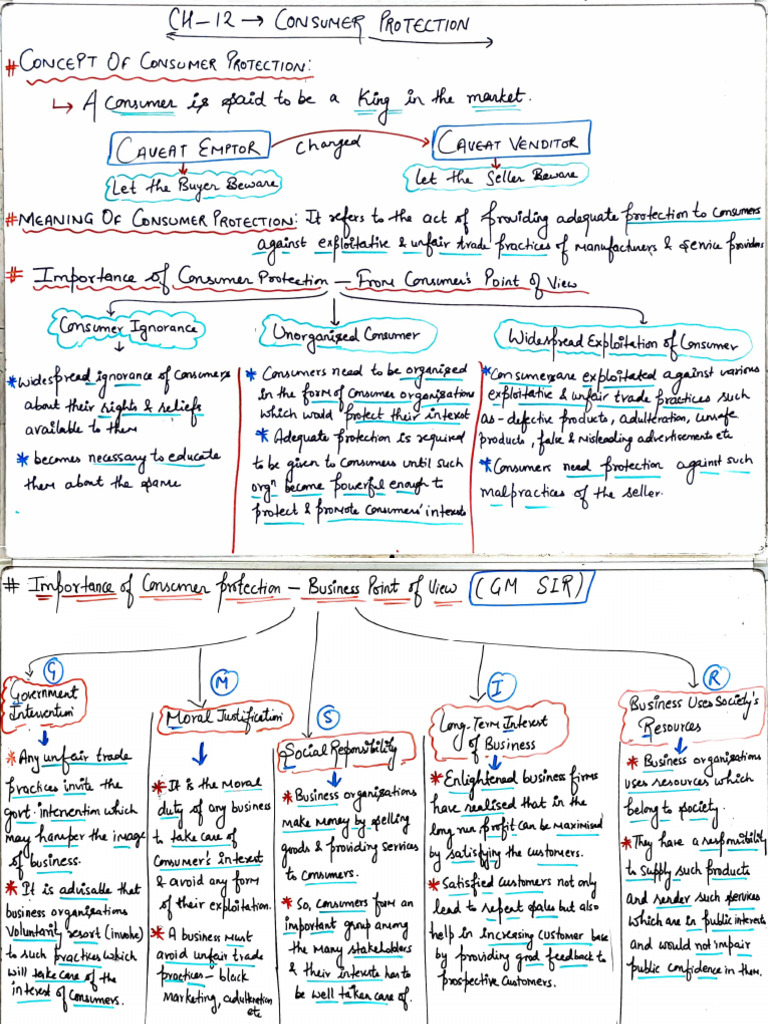 CH-12 → CONSUMER PROTECTION
# CONCEPT OF CONSUMER PROTECTION:
↳ A consumer is said to be a King in the market.
CAVEAT EMPTOR changed CAVEAT VENDITOR
Let the Buyer Beware
Let the Seller Beware
# MEANING OF CONSUMER PROTECTION: It refers to the act of providing adequate protection to consumers
against exploitative & unfair trade practices of manufacturers & service providers
# Importance of Consumer Protection — From Consumer's Point of View
Consumer Ignorance
* widespread ignorance of consumers
about their rights & reliefs
available to them
* becomes necessary to educate
them about the same
Unorganised Consumer
* Consumers need to be organised
in the form of consumer organisations
which would protect their interest
* Adequate protection is required
to be given to consumers until such
orgn become powerful enough to
protect & promote consumers' interests
Widespread Exploitation of Consumer
* Consumers are exploitated against various
exploitative & unfair trade practices such
as - defective products, adulteration, unsafe
products, false & misleading advertisements etc
* Consumers need protection against such
malpractices of the seller.
# Importance of Consumer protection — Business Point of View (GM SIR)
G
Government
Intervention
* Any unfair trade
practices invite the
govt. intervention which
may hamper the image
of business.
* It is advisable that
business organisations
voluntarily resort (involve)
to such practices which
will take care of the
interest of consumers.
M
Moral Justification
* It is the moral
duty of any business
to take care of
consumer's interest
& avoid any form
of their exploitation.
* A business must
avoid unfair trade
practices - black
marketing, adulteration
etc
S
Social Reponsibility
* Business organisations
make money by selling
goods & providing services
to consumers.
* So, consumers form an
important group among
the many stakeholders
& their interests has to
be well taken care of.
I
Long-Term Interest
of Business
* Enlightened business firms
have realised that in the
long run profit can be maximised
by satisfying the customers.
* Satisfied customers not only
lead to repeat sales but also
help in increasing customer base
by providing good feedback to
prospective customers.
R
Business Uses Society's
Resources
* Business organisations
uses resources which
belong to society.
* They have a responsibility
to supply such products
and render such services
which are in public interests
and would not impair
public confidence in them.